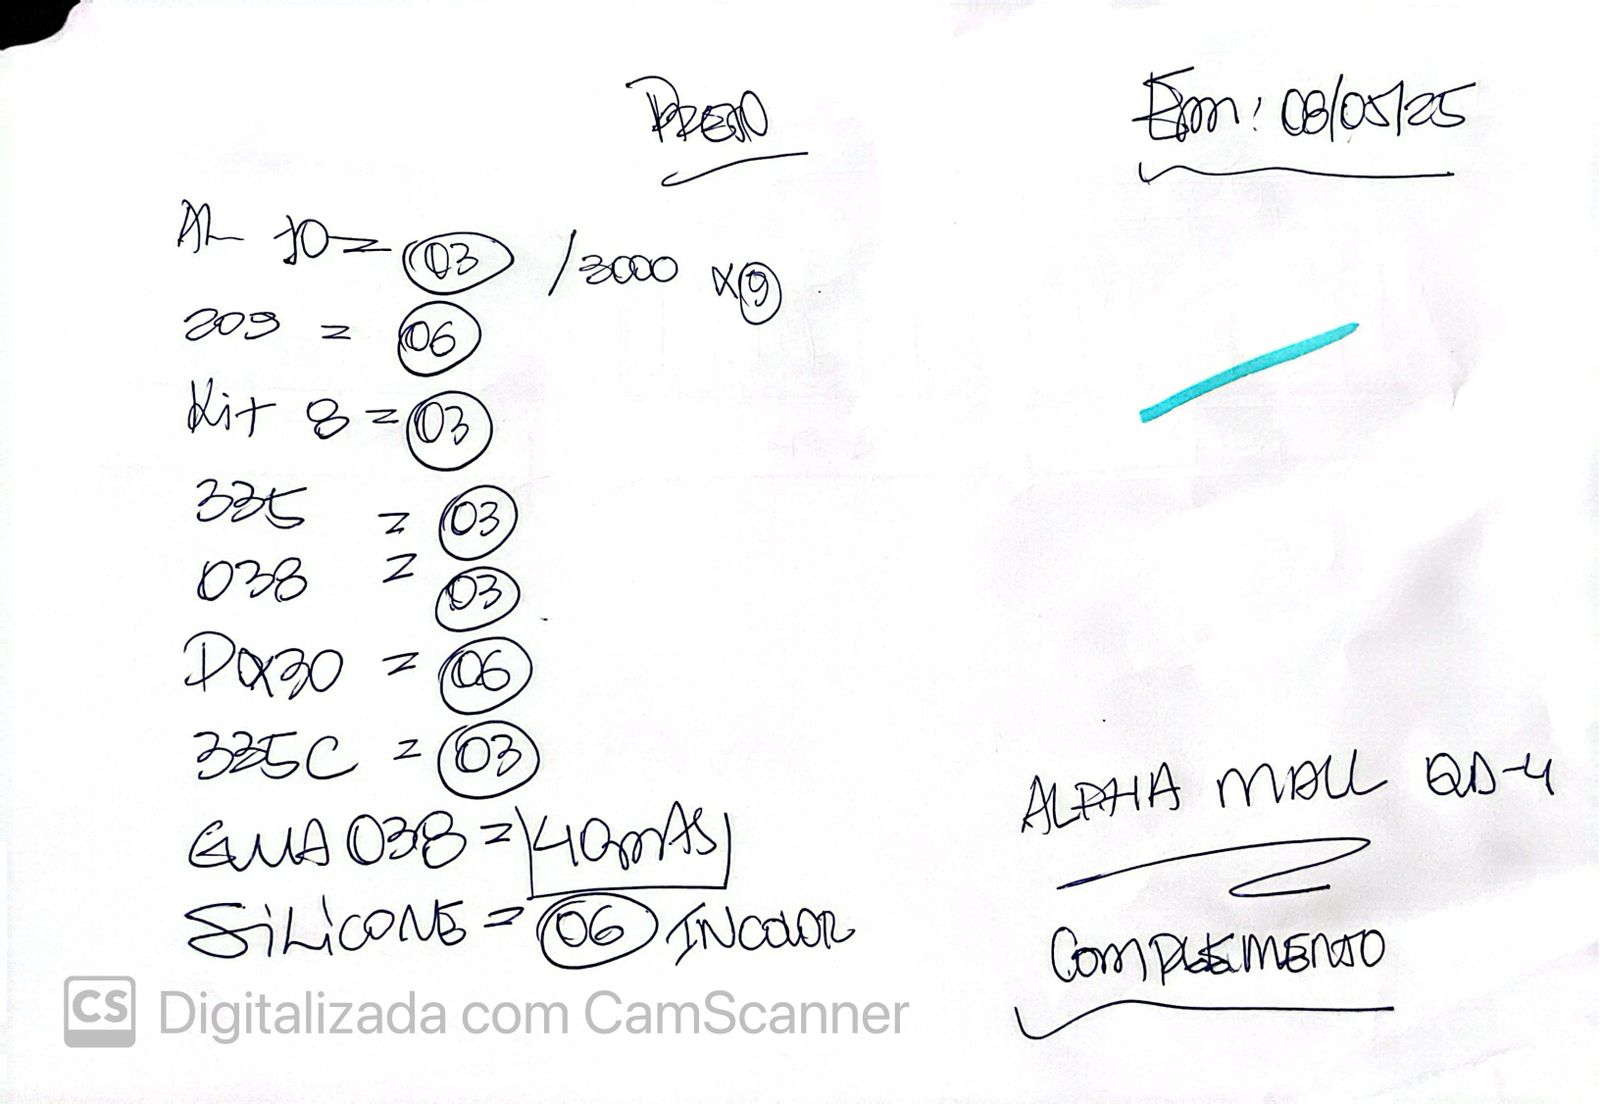 Em: 08/05/25
AL 10 = 03 /3000 x 9
209 = 06
Kit 8 = 03
335 = 03
038 = 03
DX30 = 06
335C = 03
GUIA 038 =
SiLiCONE = 06 INCOLOR
ALPHA MALL QD-4
COMPLEMENTO
CS Digitalizada com CamScanner